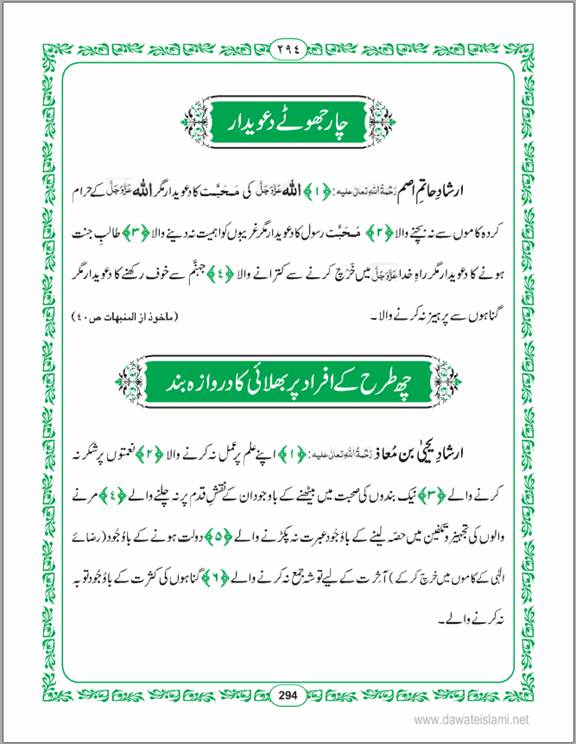 ٢٩٤
چار جھوٹے دعویدار
ارشادِ حاتمِ اصم رَحْمَۃُ اللہِ تَعَالٰی علیہ: ﴿١﴾ اللہ عَزَّوَجَلَّ کی مَحَبَّت کا دعویدار مگر اللہ عَزَّوَجَلَّ کے حرام
کردہ کاموں سے نہ بچنے والا ﴿٢﴾ مَحَبَّت رسول کا دعویدار مگر غریبوں کو اہمیت نہ دینے والا ﴿٣﴾ طالبِ جنت
ہونے کا دعویدار مگر راہِ خدا عَزَّوَجَلَّ میں خَرْچ کرنے سے کترانے والا ﴿٤﴾ جہنَّم سے خوف رکھنے کا دعویدار مگر
گناہوں سے پرہیز نہ کرنے والا۔ (ماخوذ از المنبهات ص ٤٠)
چھ طرح کے افراد پر بھلائی کا دروازہ بند
ارشادِ یحییٰ بن مُعاذ رَحْمَۃُ اللہِ تَعَالٰی علیہ: ﴿١﴾ اپنے علم پر عمل نہ کرنے والا ﴿٢﴾ نعمتوں پر شکر نہ
کرنے والے ﴿٣﴾ نیک بندوں کی صحبت میں بیٹھنے کے باوجود ان کے نقشِ قدم پر نہ چلنے والے ﴿٤﴾ مرنے
والوں کی تجہیز و تکفین میں حصّہ لینے کے باوُجُود عبرت نہ پکڑنے والے ﴿٥﴾ دولت ہونے کے باوجُود (رضائے
الٰہی کے کاموں میں خرچ کر کے) آخرت کے لیے توشہ جمع نہ کرنے والے ﴿٦﴾ گناہوں کی کثرت کے باوُجُود توبہ
نہ کرنے والے۔
294
www.dawateislami.net